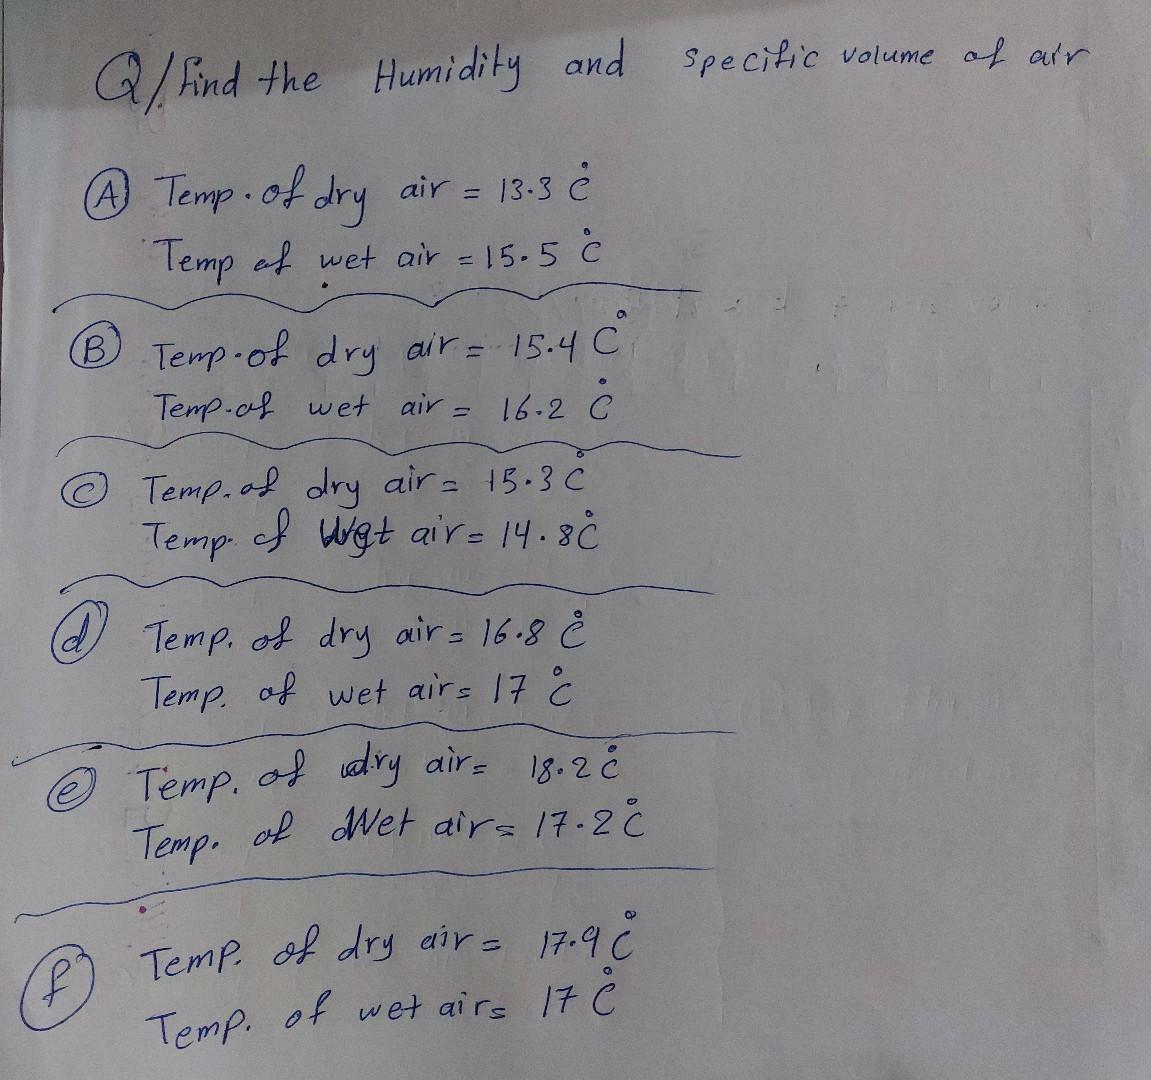 Q/ Find the Humidity and specific volume of air
(A) Temp. of dry air = 13.3 C°
Temp of wet air = 15.5 C°
(B) Temp. of dry air = 15.4 C°
Temp. of wet air = 16.2 C°
(C) Temp. of dry air = 15.3 C°
Temp. of Wet air = 14.8 C°
(d) Temp. of dry air = 16.8 C°
Temp. of wet air = 17 C°
(e) Temp. of dry air = 18.2 C°
Temp. of Wet air = 17.2 C°
(f) Temp. of dry air = 17.9 C°
Temp. of wet air = 17 C°